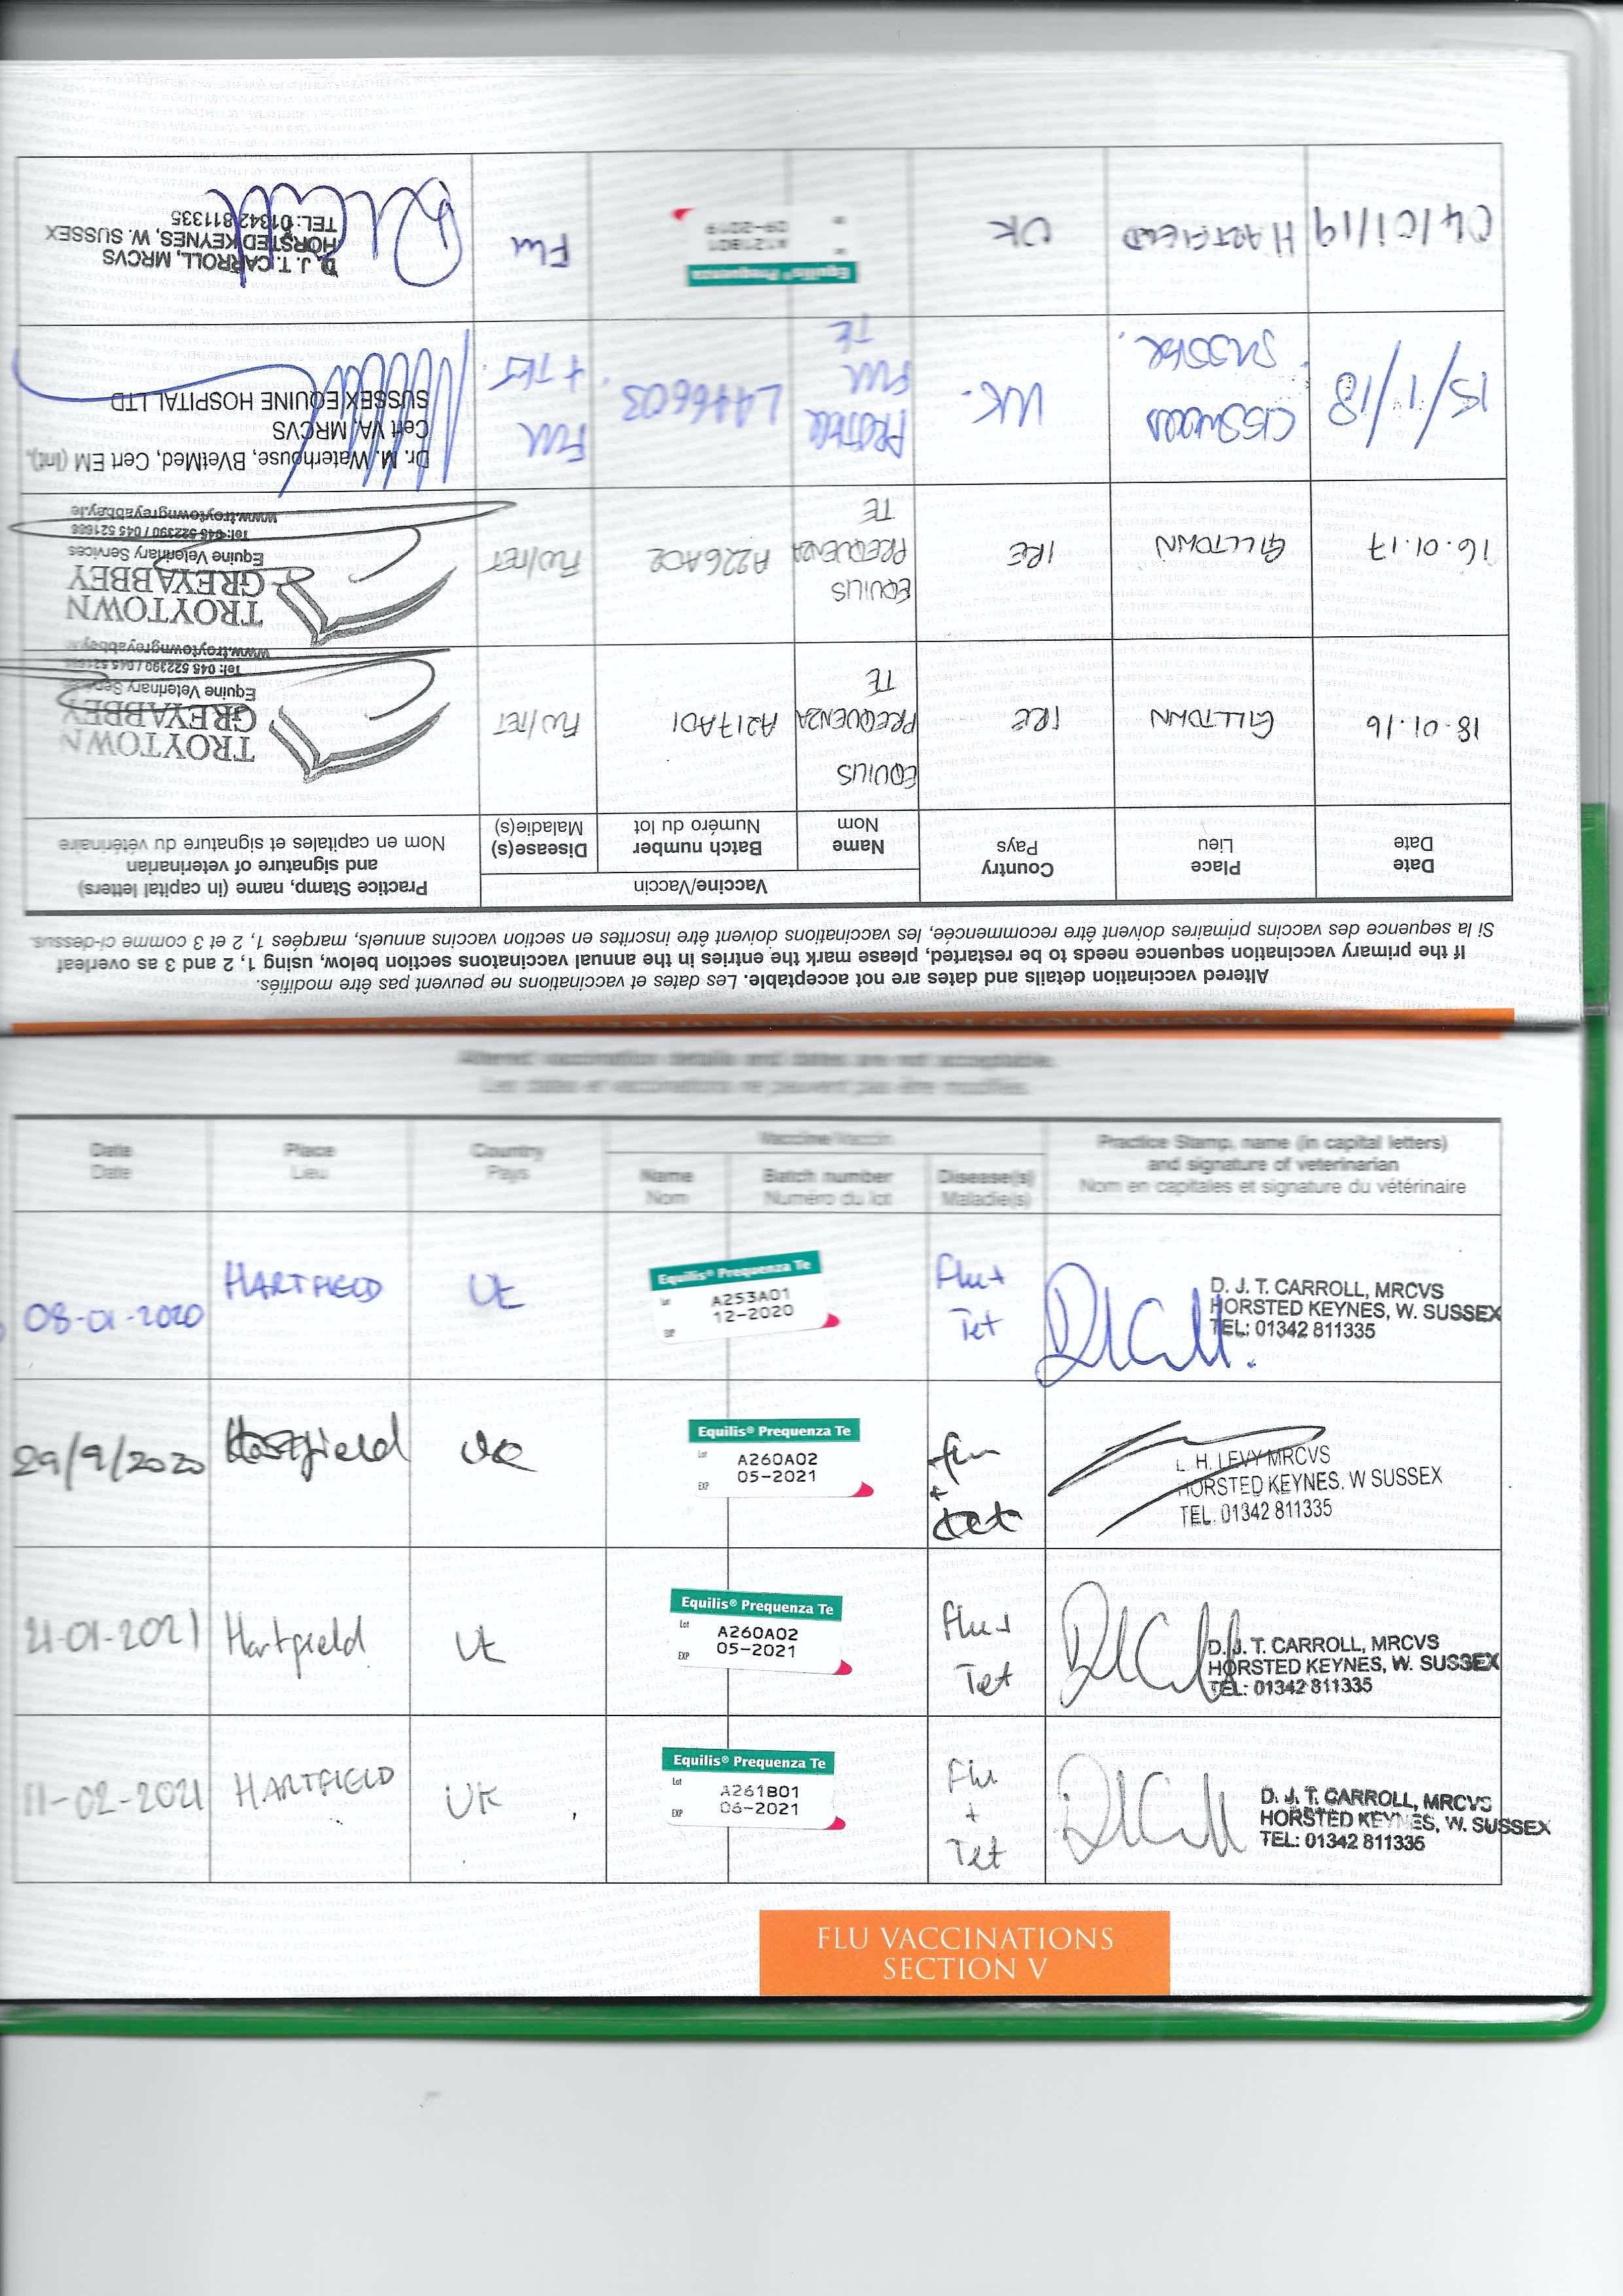 Altered vaccination details and dates are not acceptable. Les dates et vaccinations ne peuvent pas être modifiés.
If the primary vaccination sequence needs to be restarted, please mark the entries in the annual vaccinatons section below, using 1, 2 and 3 as overleaf
Si la sequence des vaccins primaires doivent être recommencée, les vaccinations doivent être inscrites en section vaccins annuels, marqées 1, 2 et 3 comme ci-dessus.
Date
Date
Place
Lieu
Country
Pays
Vaccine/Vaccin
Name
Nom
Batch number
Numéro du lot
Disease(s)
Maladie(s)
Practice Stamp, name (in capital letters)
and signature of veterinarian
Nom en capitales et signature du vétérinaire
18.01.16
GILLTOWN
IRE
EQUILIS
PREQUENZA
TE
A217A01
FLU/TET
TROYTOWN
GREYABBEY
Equine Veterinary
Tel: 045 522390 / 045
www.troytowngreyabbey
16.01.17
GILLTOWN
IRE
EQUILIS
PREQUENZA
TE
A226A02
FLU/TET
TROYTOWN
GREYABBEY
Equine Veterinary Services
Tel: 045 522390 / 045 521686
www.troytowngreyabbey.ie
15/1/18
CISSWOOD
SUSSEX.
UK.
PROTEQ
FLU
TE
L446603
FLU
+ TET.
Dr. M. Waterhouse, BVetMed, Cert EM (Int),
Cert VA, MRCVS
SUSSEX EQUINE HOSPITAL LTD
04/01/19
HARTFIELD
UK
Equilis® Prequenza
A121B01
09-2019
Flu
D. J. T. CARROLL, MRCVS
HORSTED KEYNES, W. SUSSEX
TEL: 01342 811335
Altered vaccination details and dates are not acceptable.
Les dates et vaccinations ne peuvent pas être modifiés.
Date
Date
Place
Lieu
Country
Pays
Vaccine/Vaccin
Name
Nom
Batch number
Numéro du lot
Disease(s)
Maladie(s)
Practice Stamp, name (in capital letters)
and signature of veterinarian
Nom en capitales et signature du vétérinaire
08-01-2020
HARTFIELD
UK
Equilis® Prequenza Te
Lot A253A01
EXP 12-2020
Flu +
Tet
D. J. T. CARROLL, MRCVS
HORSTED KEYNES, W. SUSSEX
TEL: 01342 811335
29/9/2020
Hartfield
UK
Equilis® Prequenza Te
Lot A260A02
EXP 05-2021
flu
+
tet
L. H. LEVY MRCVS
HORSTED KEYNES. W SUSSEX
TEL. 01342 811335
21-01-2021
Hartfield
UK
Equilis® Prequenza Te
Lot A260A02
EXP 05-2021
Flu +
Tet
D. J. T. CARROLL, MRCVS
HORSTED KEYNES, W. SUSSEX
TEL: 01342 811335
11-02-2021
HARTFIELD
UK
Equilis® Prequenza Te
Lot A261B01
EXP 06-2021
Flu
+
Tet
D. J. T. CARROLL, MRCVS
HORSTED KEYNES, W. SUSSEX
TEL: 01342 811335
FLU VACCINATIONS
SECTION V